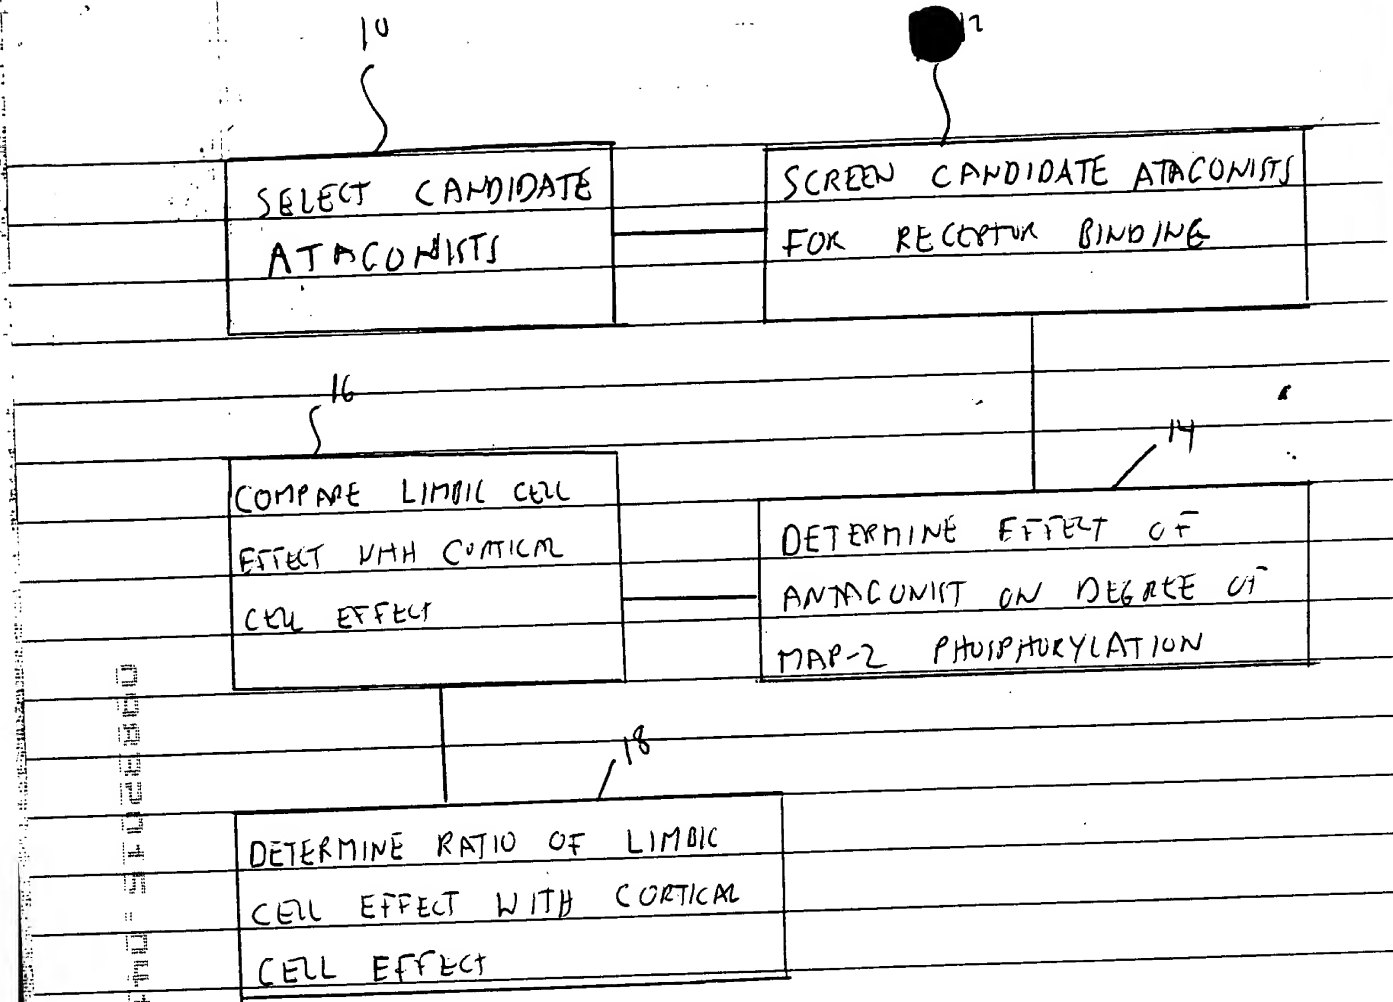 10
12
SELECT CANDIDATE
ATAGONISTS
SCREEN CANDIDATE ATAGONISTS
FOR RECEPTOR BINDING
16
14
COMPARE LIMBIC CELL
EFFECT WITH CORTICAL
CELL EFFECT
DETERMINE EFFECT OF
ANTAGONIST ON DEGREE OF
MAP-2 PHOSPHORYLATION
18
DETERMINE RATIO OF LIMBIC
CELL EFFECT WITH CORTICAL
CELL EFFECT